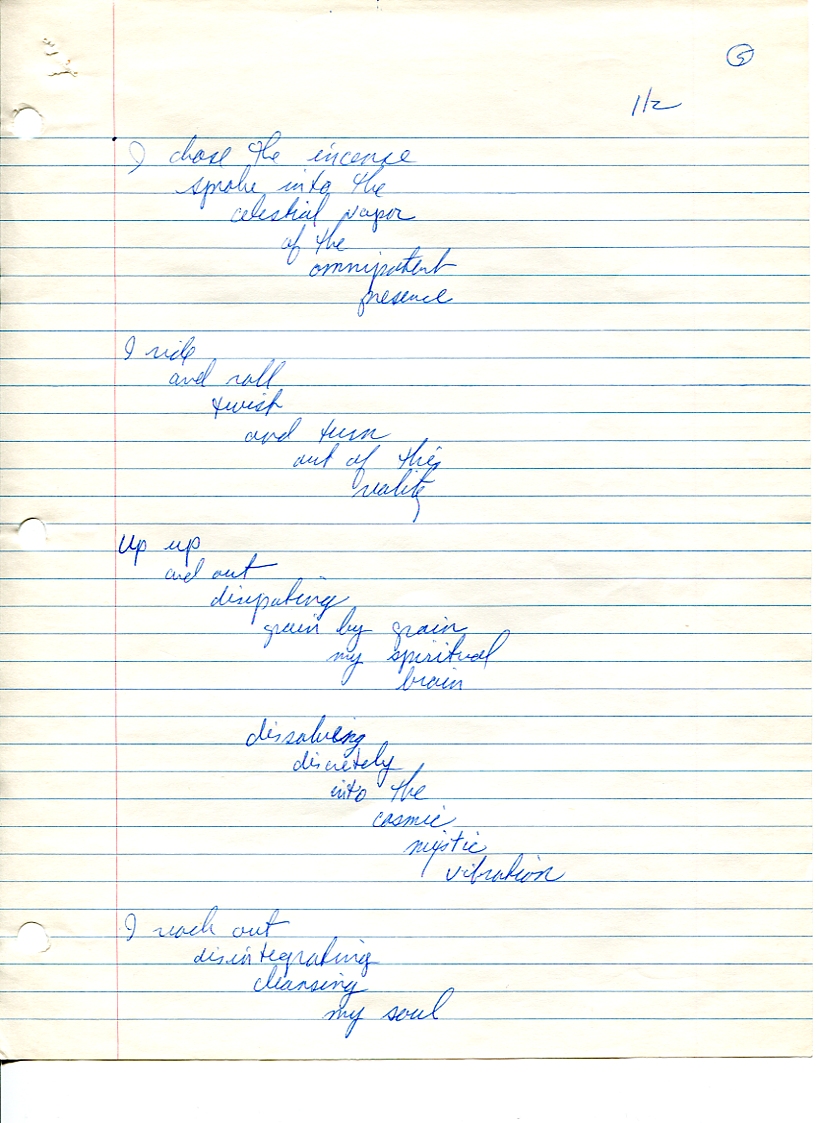 5
1/2
I chase the incense
smoke into the
celestial vapor
of the
omnipotent
presence
I ride
and roll
twist
and turn
out of this
reality
Up up
and out
disipating
grain by grain
my spiritual
brain
dissolving
discretely
into the
cosmic
mystic
vibration
I reach out
disintegrating
cleansing
my soul